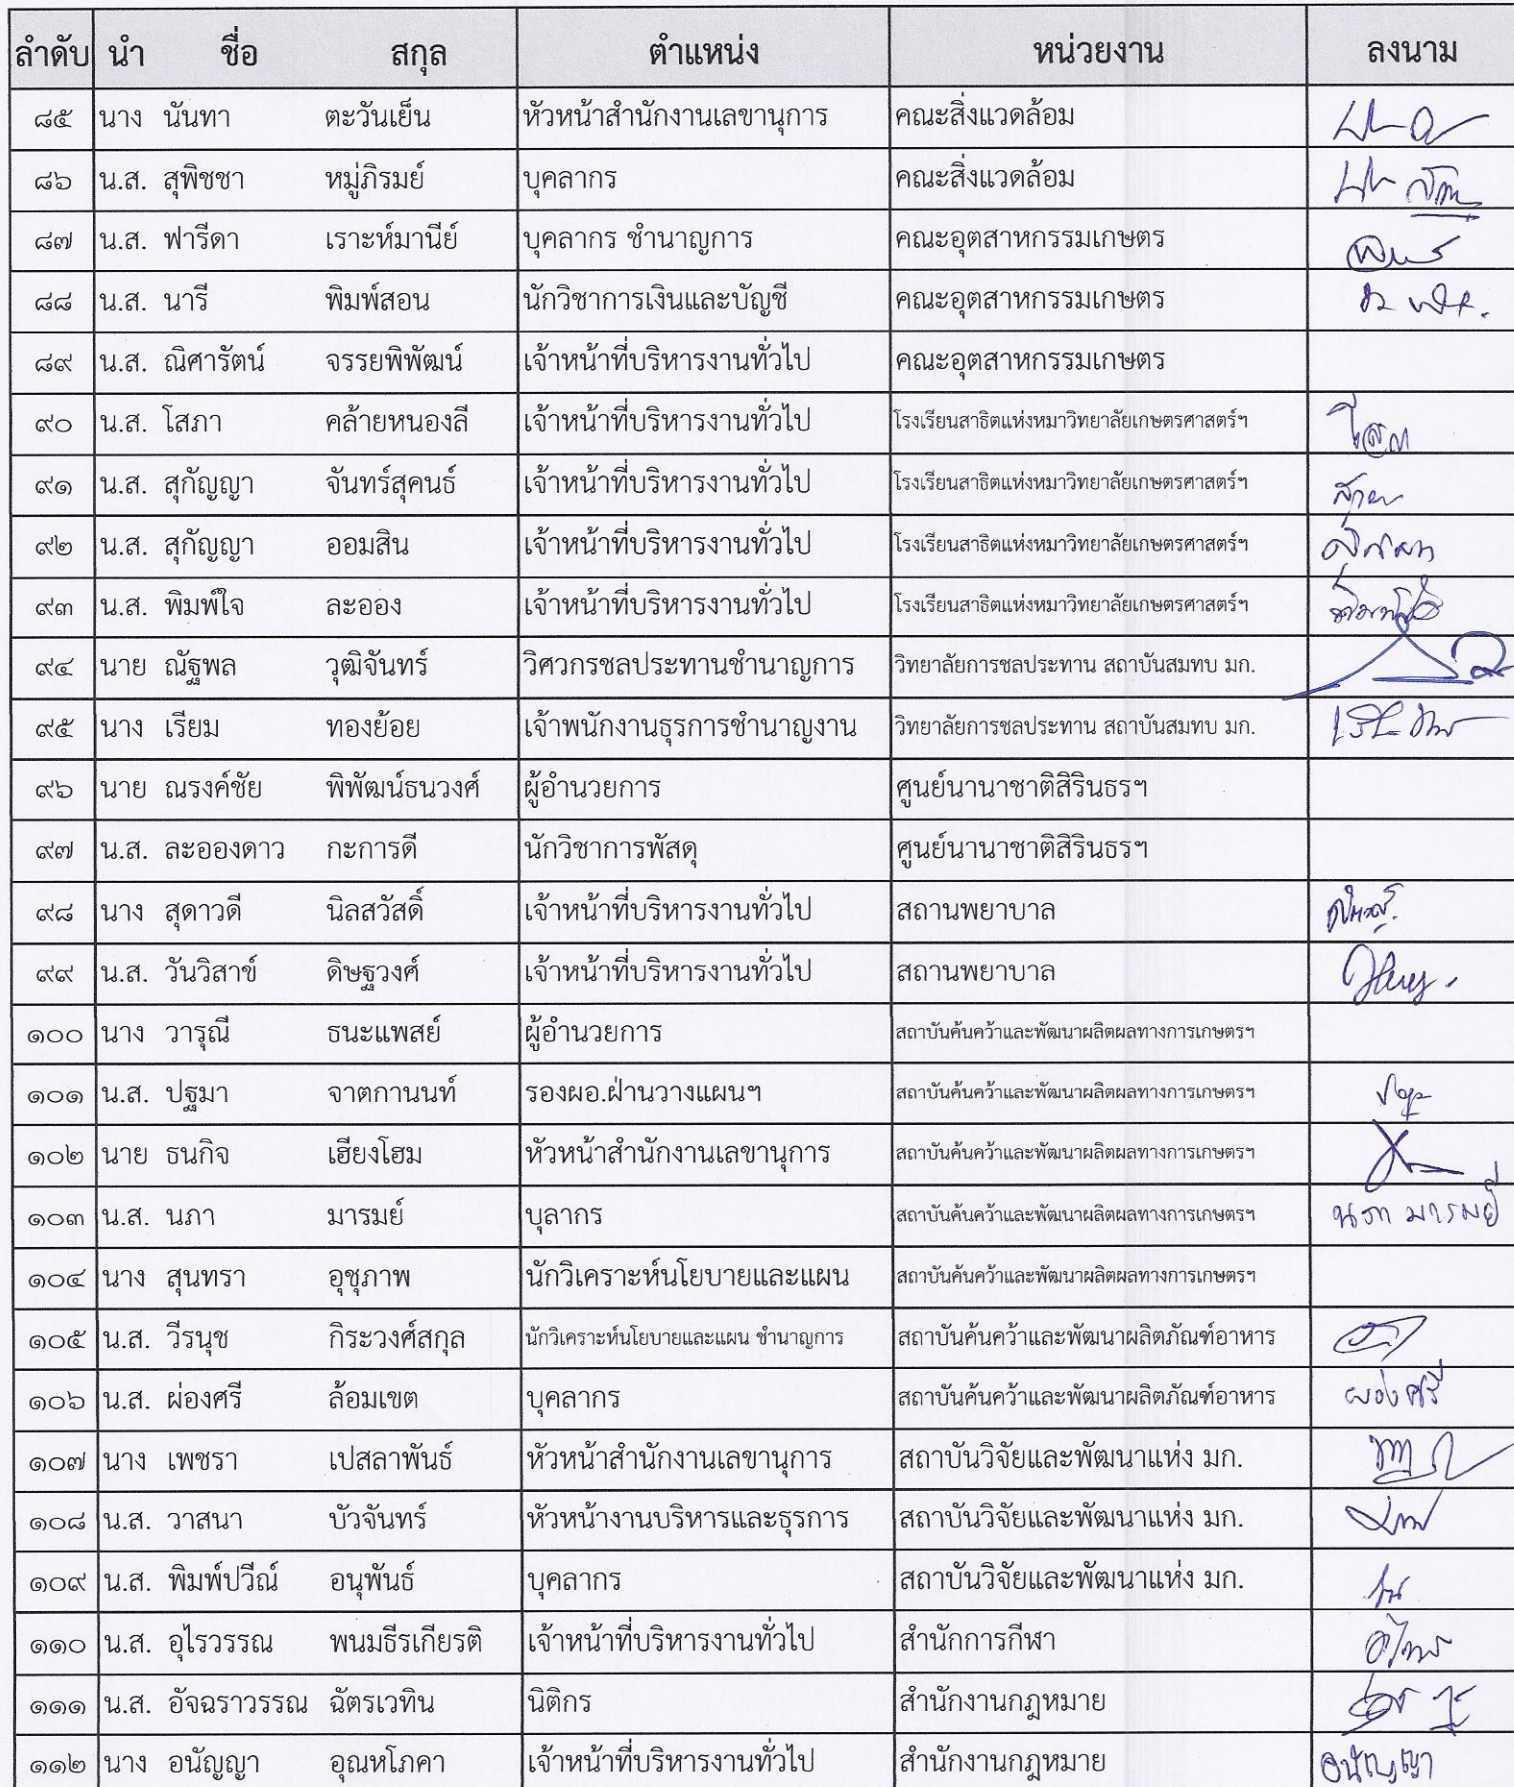 ลำดับ นำ ชื่อ สกุล ตำแหน่ง หน่วยงาน ลงนาม
๘๕ นาง นันทา ตะวันเย็น หัวหน้าสำนักงานเลขานุการ คณะสิ่งแวดล้อม
๘๖ น.ส. สุพิชชา หมู่ภิรมย์ บุคลากร คณะสิ่งแวดล้อม
๘๗ น.ส. ฟารีดา เราะห์มานีย์ บุคลากร ชำนาญการ คณะอุตสาหกรรมเกษตร
๘๘ น.ส. นารี พิมพ์สอน นักวิชาการเงินและบัญชี คณะอุตสาหกรรมเกษตร
๘๙ น.ส. ณิศารัตน์ จรรยพิพัฒน์ เจ้าหน้าที่บริหารงานทั่วไป คณะอุตสาหกรรมเกษตร
๙๐ น.ส. โสภา คล้ายหนองลี เจ้าหน้าที่บริหารงานทั่วไป โรงเรียนสาธิตแห่งหมาวิทยาลัยเกษตรศาสตร์ฯ
๙๑ น.ส. สุกัญญา จันทร์สุคนธ์ เจ้าหน้าที่บริหารงานทั่วไป โรงเรียนสาธิตแห่งหมาวิทยาลัยเกษตรศาสตร์ฯ
๙๒ น.ส. สุกัญญา ออมสิน เจ้าหน้าที่บริหารงานทั่วไป โรงเรียนสาธิตแห่งหมาวิทยาลัยเกษตรศาสตร์ฯ
๙๓ น.ส. พิมพ์ใจ ละออง เจ้าหน้าที่บริหารงานทั่วไป โรงเรียนสาธิตแห่งหมาวิทยาลัยเกษตรศาสตร์ฯ
๙๔ นาย ณัฐพล วุฒิจันทร์ วิศวกรชลประทานชำนาญการ วิทยาลัยการชลประทาน สถาบันสมทบ มก.
๙๕ นาง เรียม ทองย้อย เจ้าพนักงานธุรการชำนาญงาน วิทยาลัยการชลประทาน สถาบันสมทบ มก.
๙๖ นาย ณรงค์ชัย พิพัฒน์ธนวงศ์ ผู้อำนวยการ ศูนย์นานาชาติสิรินธรฯ
๙๗ น.ส. ละอองดาว กะการดี นักวิชาการพัสดุ ศูนย์นานาชาติสิรินธรฯ
๙๘ นาง สุดาวดี นิลสวัสดิ์ เจ้าหน้าที่บริหารงานทั่วไป สถานพยาบาล
๙๙ น.ส. วันวิสาข์ ดิษฐวงศ์ เจ้าหน้าที่บริหารงานทั่วไป สถานพยาบาล
๑๐๐ นาง วารุณี ธนะแพสย์ ผู้อำนวยการ สถาบันค้นคว้าและพัฒนาผลิตผลทางการเกษตรฯ
๑๐๑ น.ส. ปฐมา จาตกานนท์ รองผอ.ฝ่านวางแผนฯ สถาบันค้นคว้าและพัฒนาผลิตผลทางการเกษตรฯ
๑๐๒ นาย ธนกิจ เฮียงโฮม หัวหน้าสำนักงานเลขานุการ สถาบันค้นคว้าและพัฒนาผลิตผลทางการเกษตรฯ
๑๐๓ น.ส. นภา มารมย์ บุลากร สถาบันค้นคว้าและพัฒนาผลิตผลทางการเกษตรฯ นภา มารมย์
๑๐๔ นาง สุนทรา อุชุภาพ นักวิเคราะห์นโยบายและแผน สถาบันค้นคว้าและพัฒนาผลิตผลทางการเกษตรฯ
๑๐๕ น.ส. วีรนุช กิระวงศ์สกุล นักวิเคราะห์นโยบายและแผน ชำนาญการ สถาบันค้นคว้าและพัฒนาผลิตภัณฑ์อาหาร
๑๐๖ น.ส. ผ่องศรี ล้อมเขต บุคลากร สถาบันค้นคว้าและพัฒนาผลิตภัณฑ์อาหาร ผ่องศรี
๑๐๗ นาง เพชรา เปสลาพันธ์ หัวหน้าสำนักงานเลขานุการ สถาบันวิจัยและพัฒนาแห่ง มก.
๑๐๘ น.ส. วาสนา บัวจันทร์ หัวหน้างานบริหารและธุรการ สถาบันวิจัยและพัฒนาแห่ง มก.
๑๐๙ น.ส. พิมพ์ปวีณ์ อนุพันธ์ บุคลากร สถาบันวิจัยและพัฒนาแห่ง มก.
๑๑๐ น.ส. อุไรวรรณ พนมธีรเกียรติ เจ้าหน้าที่บริหารงานทั่วไป สำนักการกีฬา
๑๑๑ น.ส. อัจฉราวรรณ ฉัตรเวทิน นิติกร สำนักงานกฎหมาย
๑๑๒ นาง อนัญญา อุณหโภคา เจ้าหน้าที่บริหารงานทั่วไป สำนักงานกฎหมาย อนัญญา